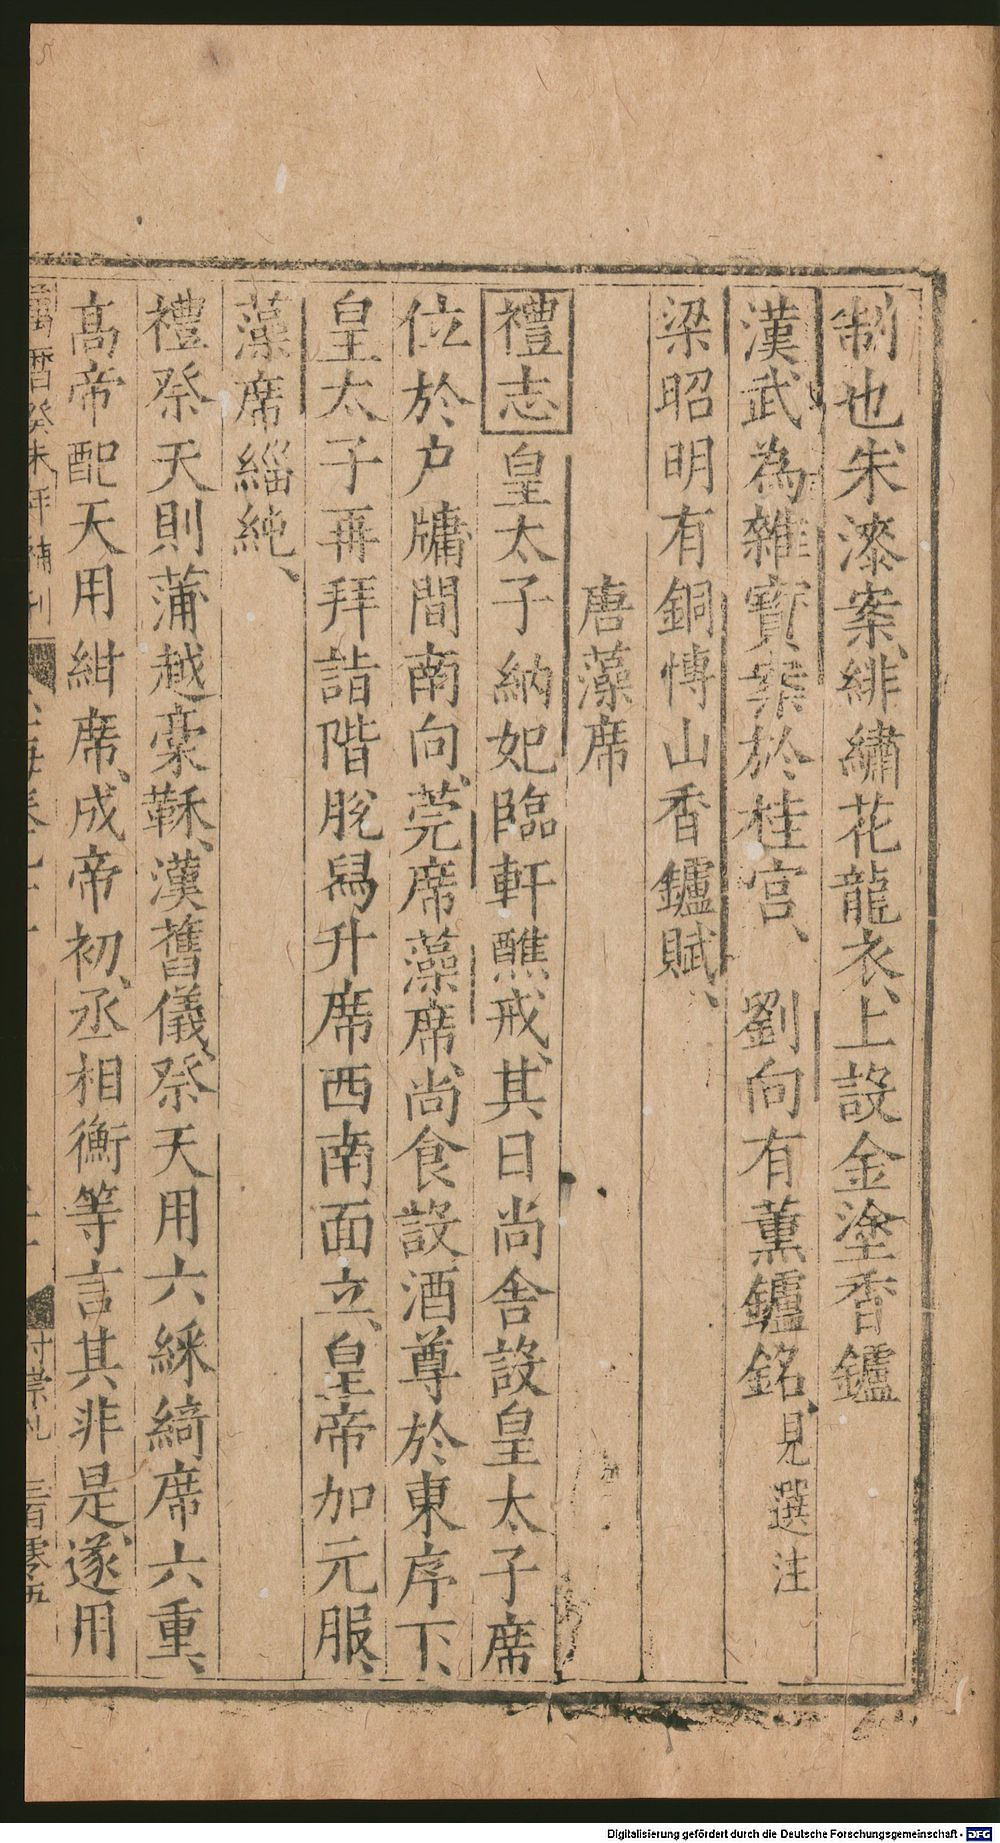 制也朱漆案緋繡花龍衣上設金塗香鑪
漢武為雜寶案於桂宫、　劉向有薰鑪銘見選注
梁昭明有銅愽山香鑪賦、
唐藻席
禮志皇太子納妃臨軒醮戒、其日尚舍設皇太子席
位於户牖間南向、莞席藻席、尚食設酒尊於東序下、
皇太子再拜詣階脫舄升席西南面立、皇帝加元服、
藻席緇純、
禮祭天則蒲越稾鞂、漢舊儀、祭天用六綵綺席六重、
高帝配天用紺席、成帝初、丞相衡等言其非是、遂用
萬曆癸未年補刊
三百零五
Digitalisierung gefördert durch die Deutsche Forschungsgemeinschaft - DFG